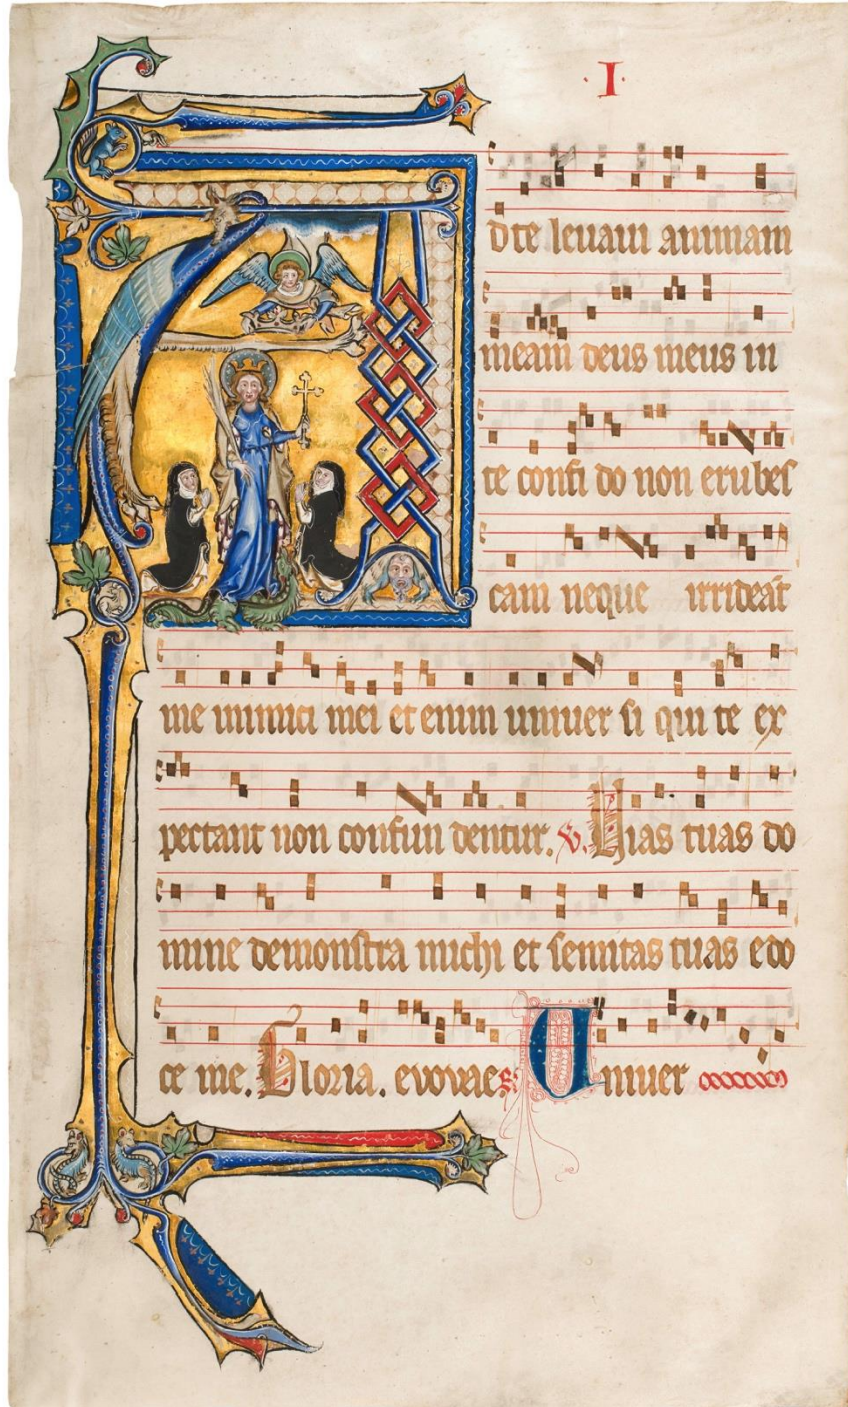 ·I·
A
dte levavi animam
meam deus meus in
te confi do non erubes
cam neque irrideāt
me inimici mei et enim univer si qui te ex
pectant non confun dentur. v. Vias tuas do
mine demonstra michi et semitas tuas edo
ce me. Gloria. evovae. Univer